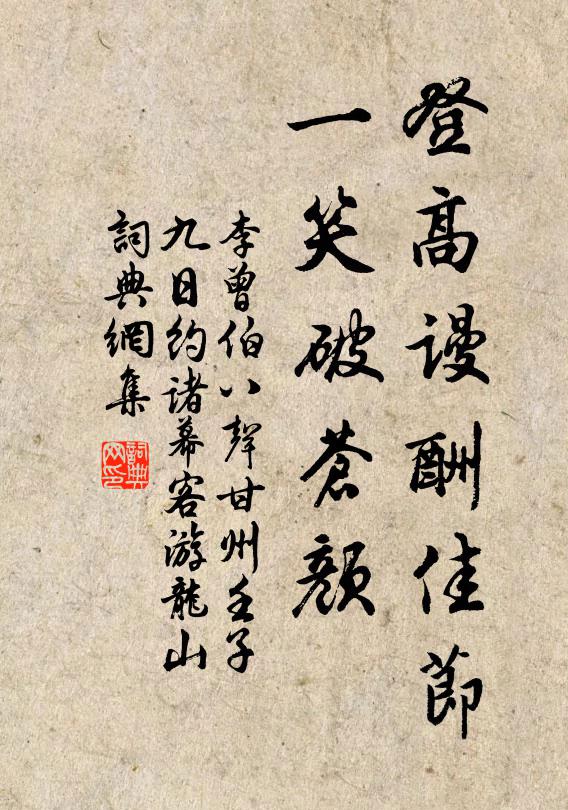 登高謾酬佳節
一笑破蒼顏
李曾伯八聲甘州壬子
九日約諸幕客游龍山
詞典網集
詞典
网印